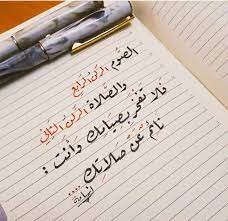 الصوم الركن الرابع
والصلاة الركن الثاني
فلا تفخر بصيامك وأنت :
نائم عن صلاتك ....